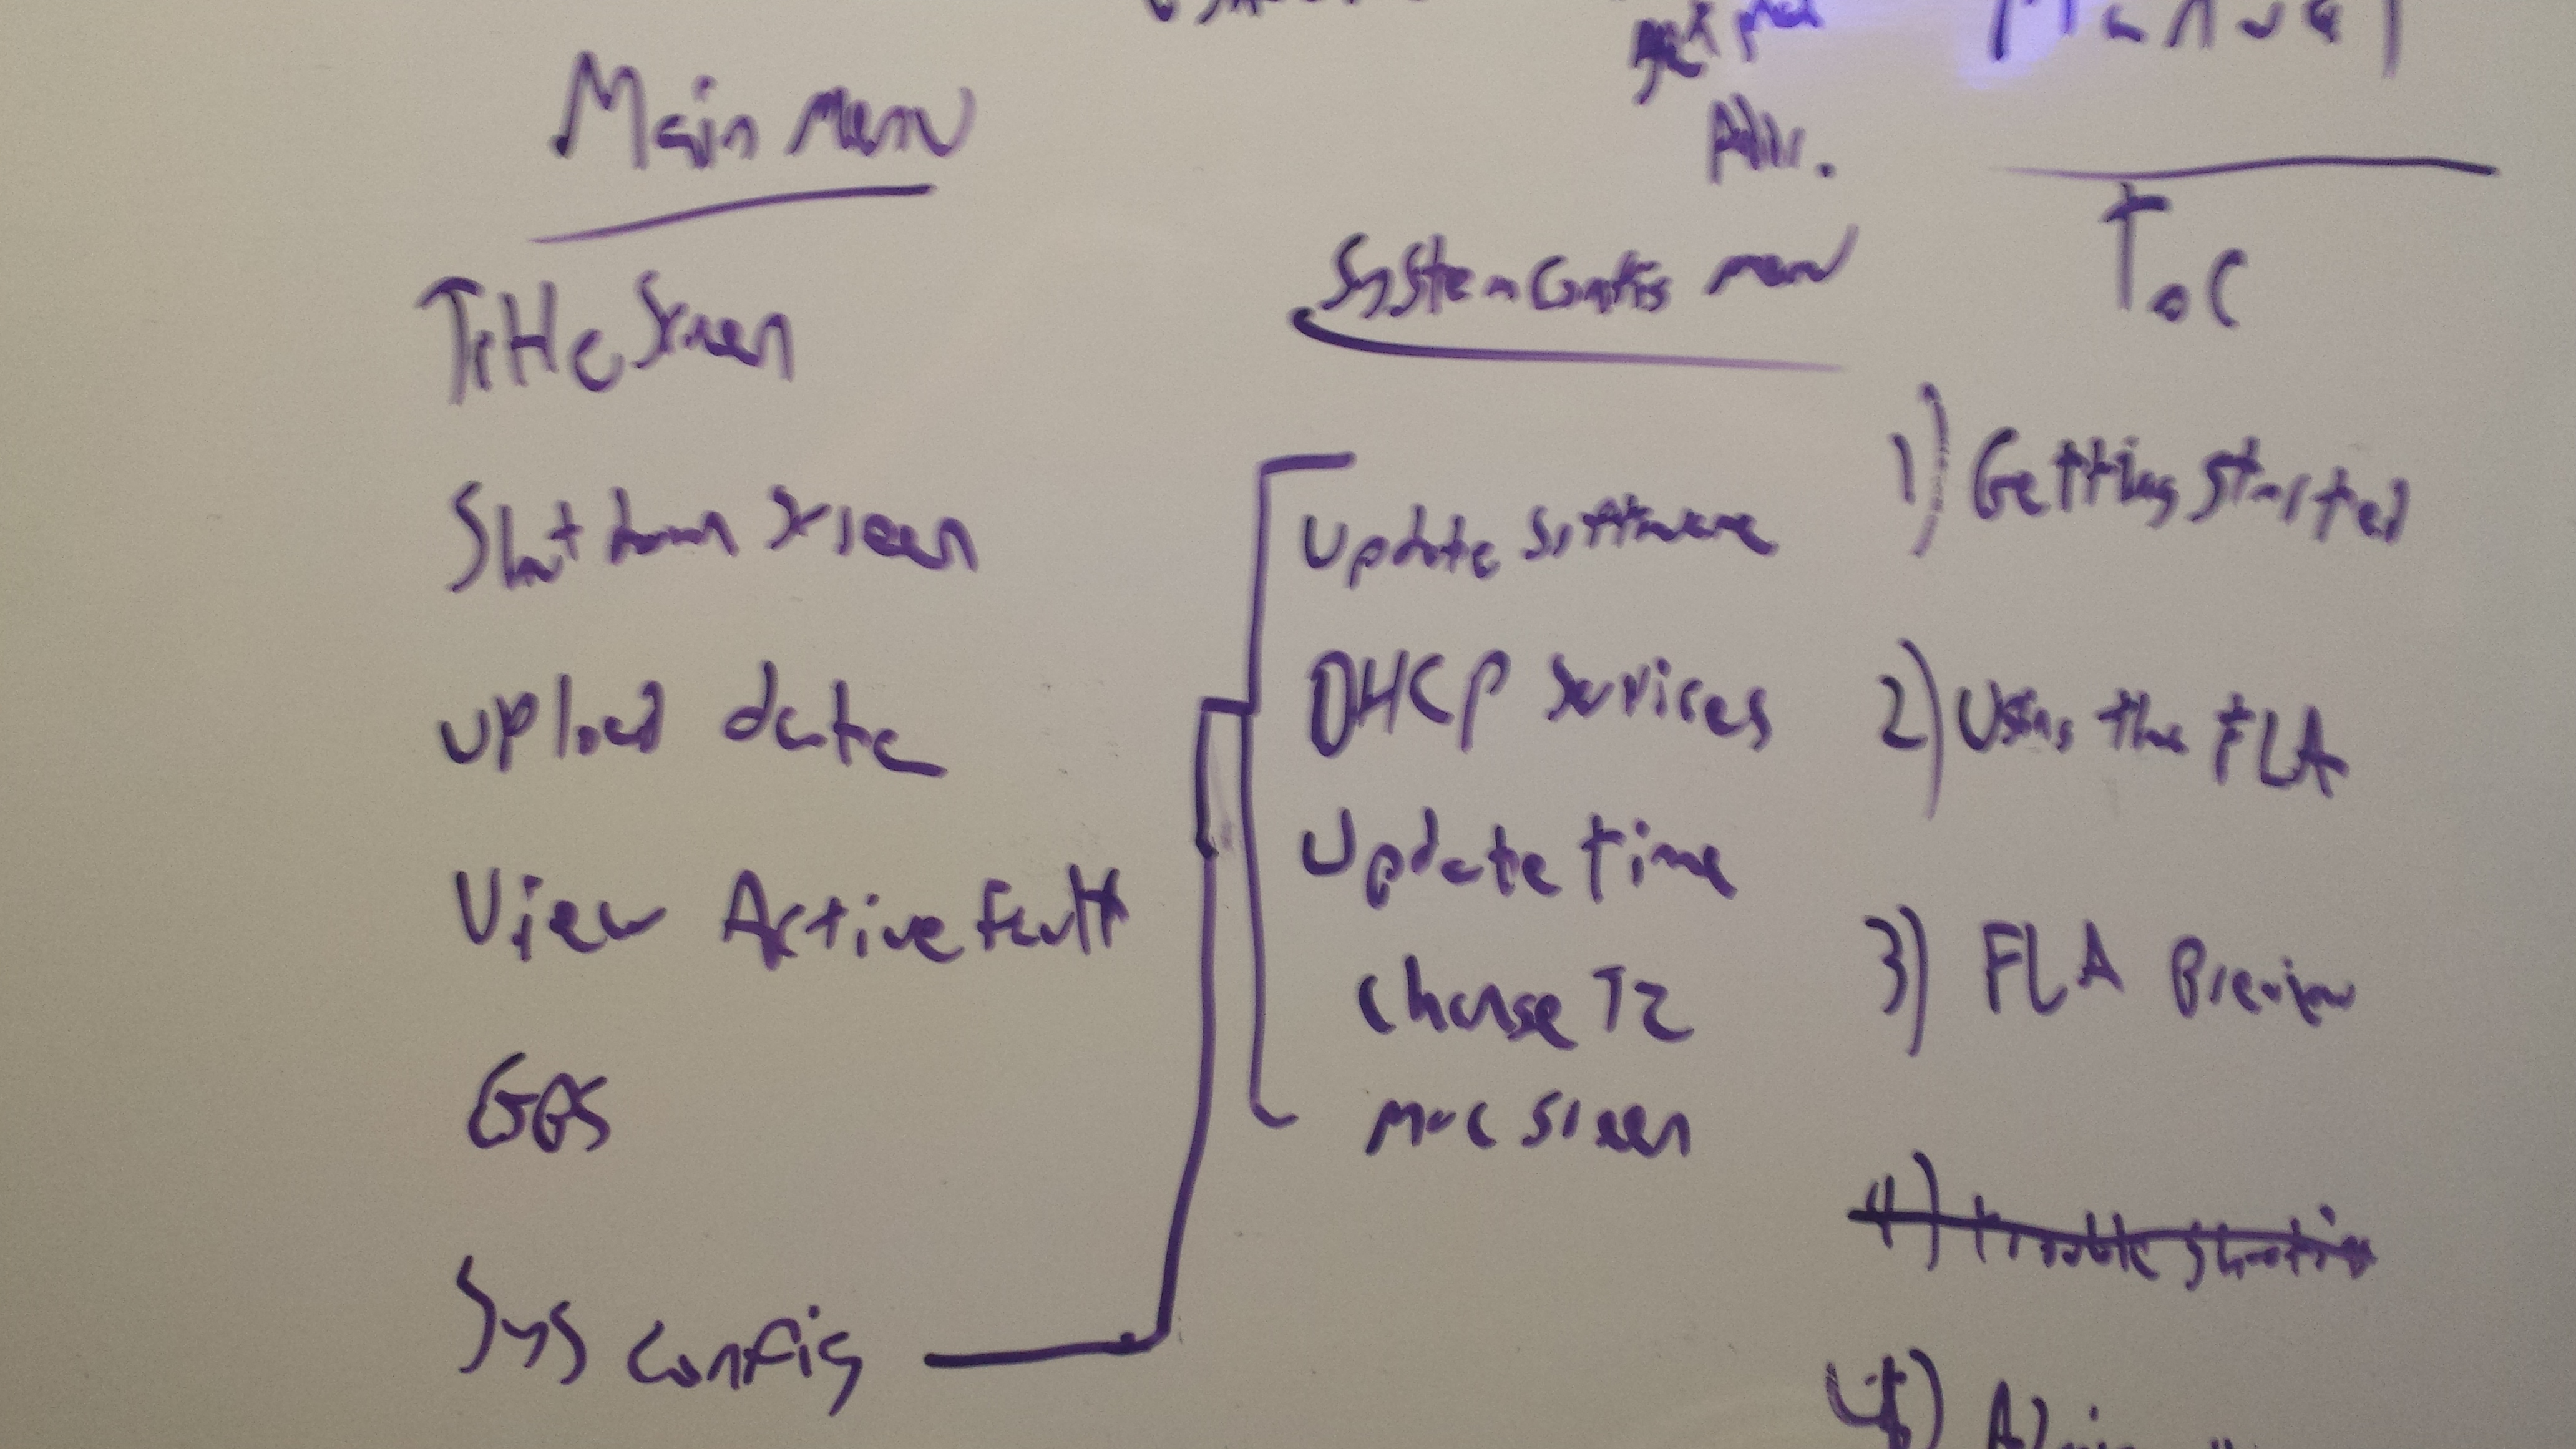 Main menu
Title Screen
Shut down Screen
upload data
View Active Fault
GPS
Sys config
Addr.
System Config menu
Update Software
DHCP Services
Update time
Change TZ
MAC Screen
Manual
ToC
1) Getting Started
2) Using the FLA
3) FLA Preview
4) Trouble Shooting